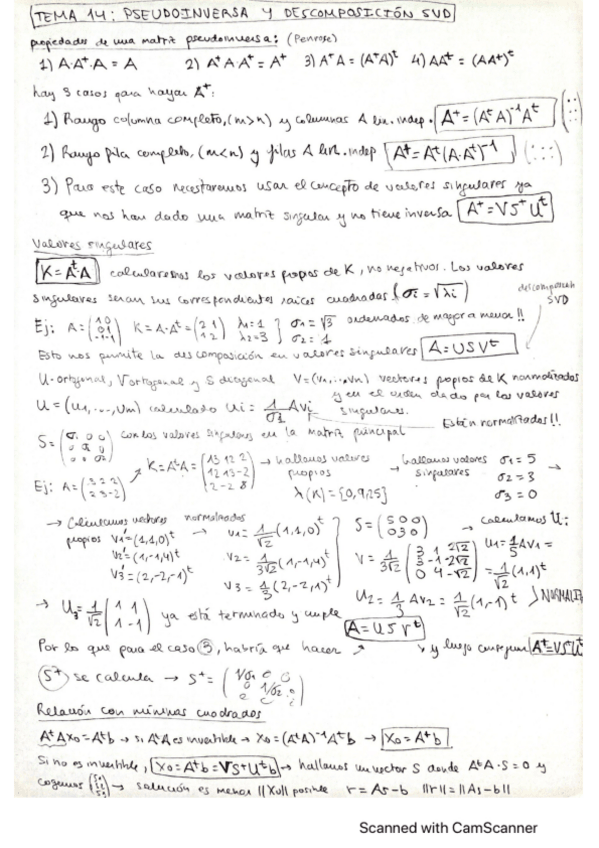 TEMA 14: PSEUDOINVERSA Y DESCOMPOSICIÓN SVD
propiedades de una matriz pseudoinversa: (Penrose)
1) A·A⁺·A = A 2) A⁺A·A⁺ = A⁺ 3) A⁺A = (A⁺A)ᵗ 4) AA⁺ = (AA⁺)ᵗ
hay 3 casos para hayar A⁺:
1) Rango columna completo, (m>n) y columnas A lin. indep. A⁺ = (AᵗA)⁻¹Aᵗ
2) Rango fila completo, (m<n) y filas A lin. indep A⁺ = Aᵗ(A·Aᵗ)⁻¹
3) Para este caso necesitaremos usar el concepto de valores singulares ya
que nos han dado una matriz singular y no tiene inversa A⁺ = VS⁺Uᵗ
Valores singulares
K = Aᵗ·A calcularemos los valores propios de K, no negativos. Los valores
singulares seran sus correspondientes raices cuadradas (σi = √λi)
descomposición SVD
Ej: A = (1 0 / 0 1 / -1 -1) K = A·Aᵗ = (2 1 / 1 2) λ₁=1 λ₂=3 σ₁ = √3 σ₂ = 1 ordenados de mayor a menor!!
Esto nos permite la descomposición en valores singulares A = USVᵗ
U ortogonal, V ortogonal y S diagonal V = (v₁,...,vn) vectores propios de K normalizados
y en el orden dado por los valores singulares.
U = (u₁,...,um) calculado ui = 1/σi Avi
Están normalizados!!
S = (σ₁ 0 0 / 0 σ₂ 0 / 0 0 σ₂) con los valores singulares en la matriz principal
Ej: A = (3 2 2 / 2 3 -2) K = AᵗA = (13 12 2 / 12 13 -2 / 2 -2 8) → hallamos valores propios λ(K) = {0,9,25} → hallamos valores singulares σ₁ = 5 σ₂ = 3 σ₃ = 0 →
→ Calculamos vectores propios v₁' = (1,1,0)ᵗ v₂' = (1,-1,4)ᵗ v₃' = (2,-2,-1)ᵗ
normalizados → v₁ = 1/√2 (1,1,0)ᵗ v₂ = 1/3√2 (1,-1,4)ᵗ v₃ = 1/3 (2,-2,-1)ᵗ
S = (5 0 0 / 0 3 0) V = 1/3√2 (3 1 2√2 / 3 -1 -2√2 / 0 4 -√2)
→ calculamos U: u₁ = 1/5 Av₁ = 1/√2 (1,1)ᵗ
U₂ = 1/3 Av₂ = 1/√2 (1,-1)ᵗ
→ U = 1/√2 (1 1 / 1 -1) ya está terminado y cumple A = USVᵗ
Por lo que para el caso 3, habría que hacer ↗ ↳ y luego conseguir A⁺ = VS⁺Uᵗ
S⁺ se calcula → S⁺ = (1/σ₁ 0 0 / 0 1/σ₂ 0
Relación con mínimos cuadrados
AᵗAx₀ = Aᵗb → si AᵗA es invertible → x₀ = (AᵗA)⁻¹Aᵗb → x₀ = A⁺b
Si no es invertible, x₀ = A⁺b = VS⁺Uᵗb → hallamos un vector S donde AᵗA·S = 0 y
cogemos → solución es menor ||x₀|| posible r = As-b ||r|| = ||As-b||
Scanned with CamScanner